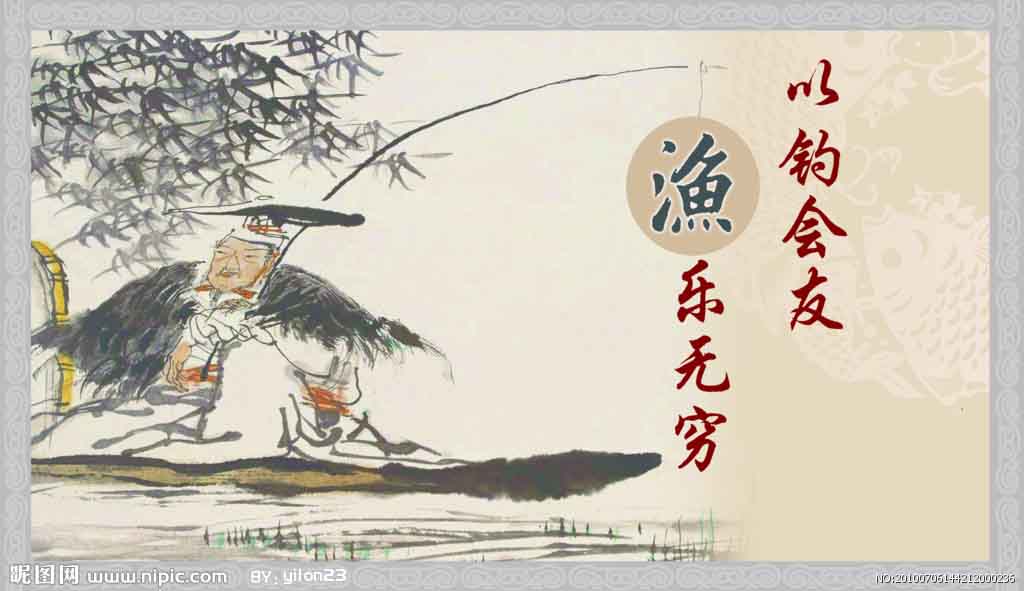 以钓会友
渔乐无穷
昵图网 www.nipic.com BY: yifon23
NO:20100706144212000236